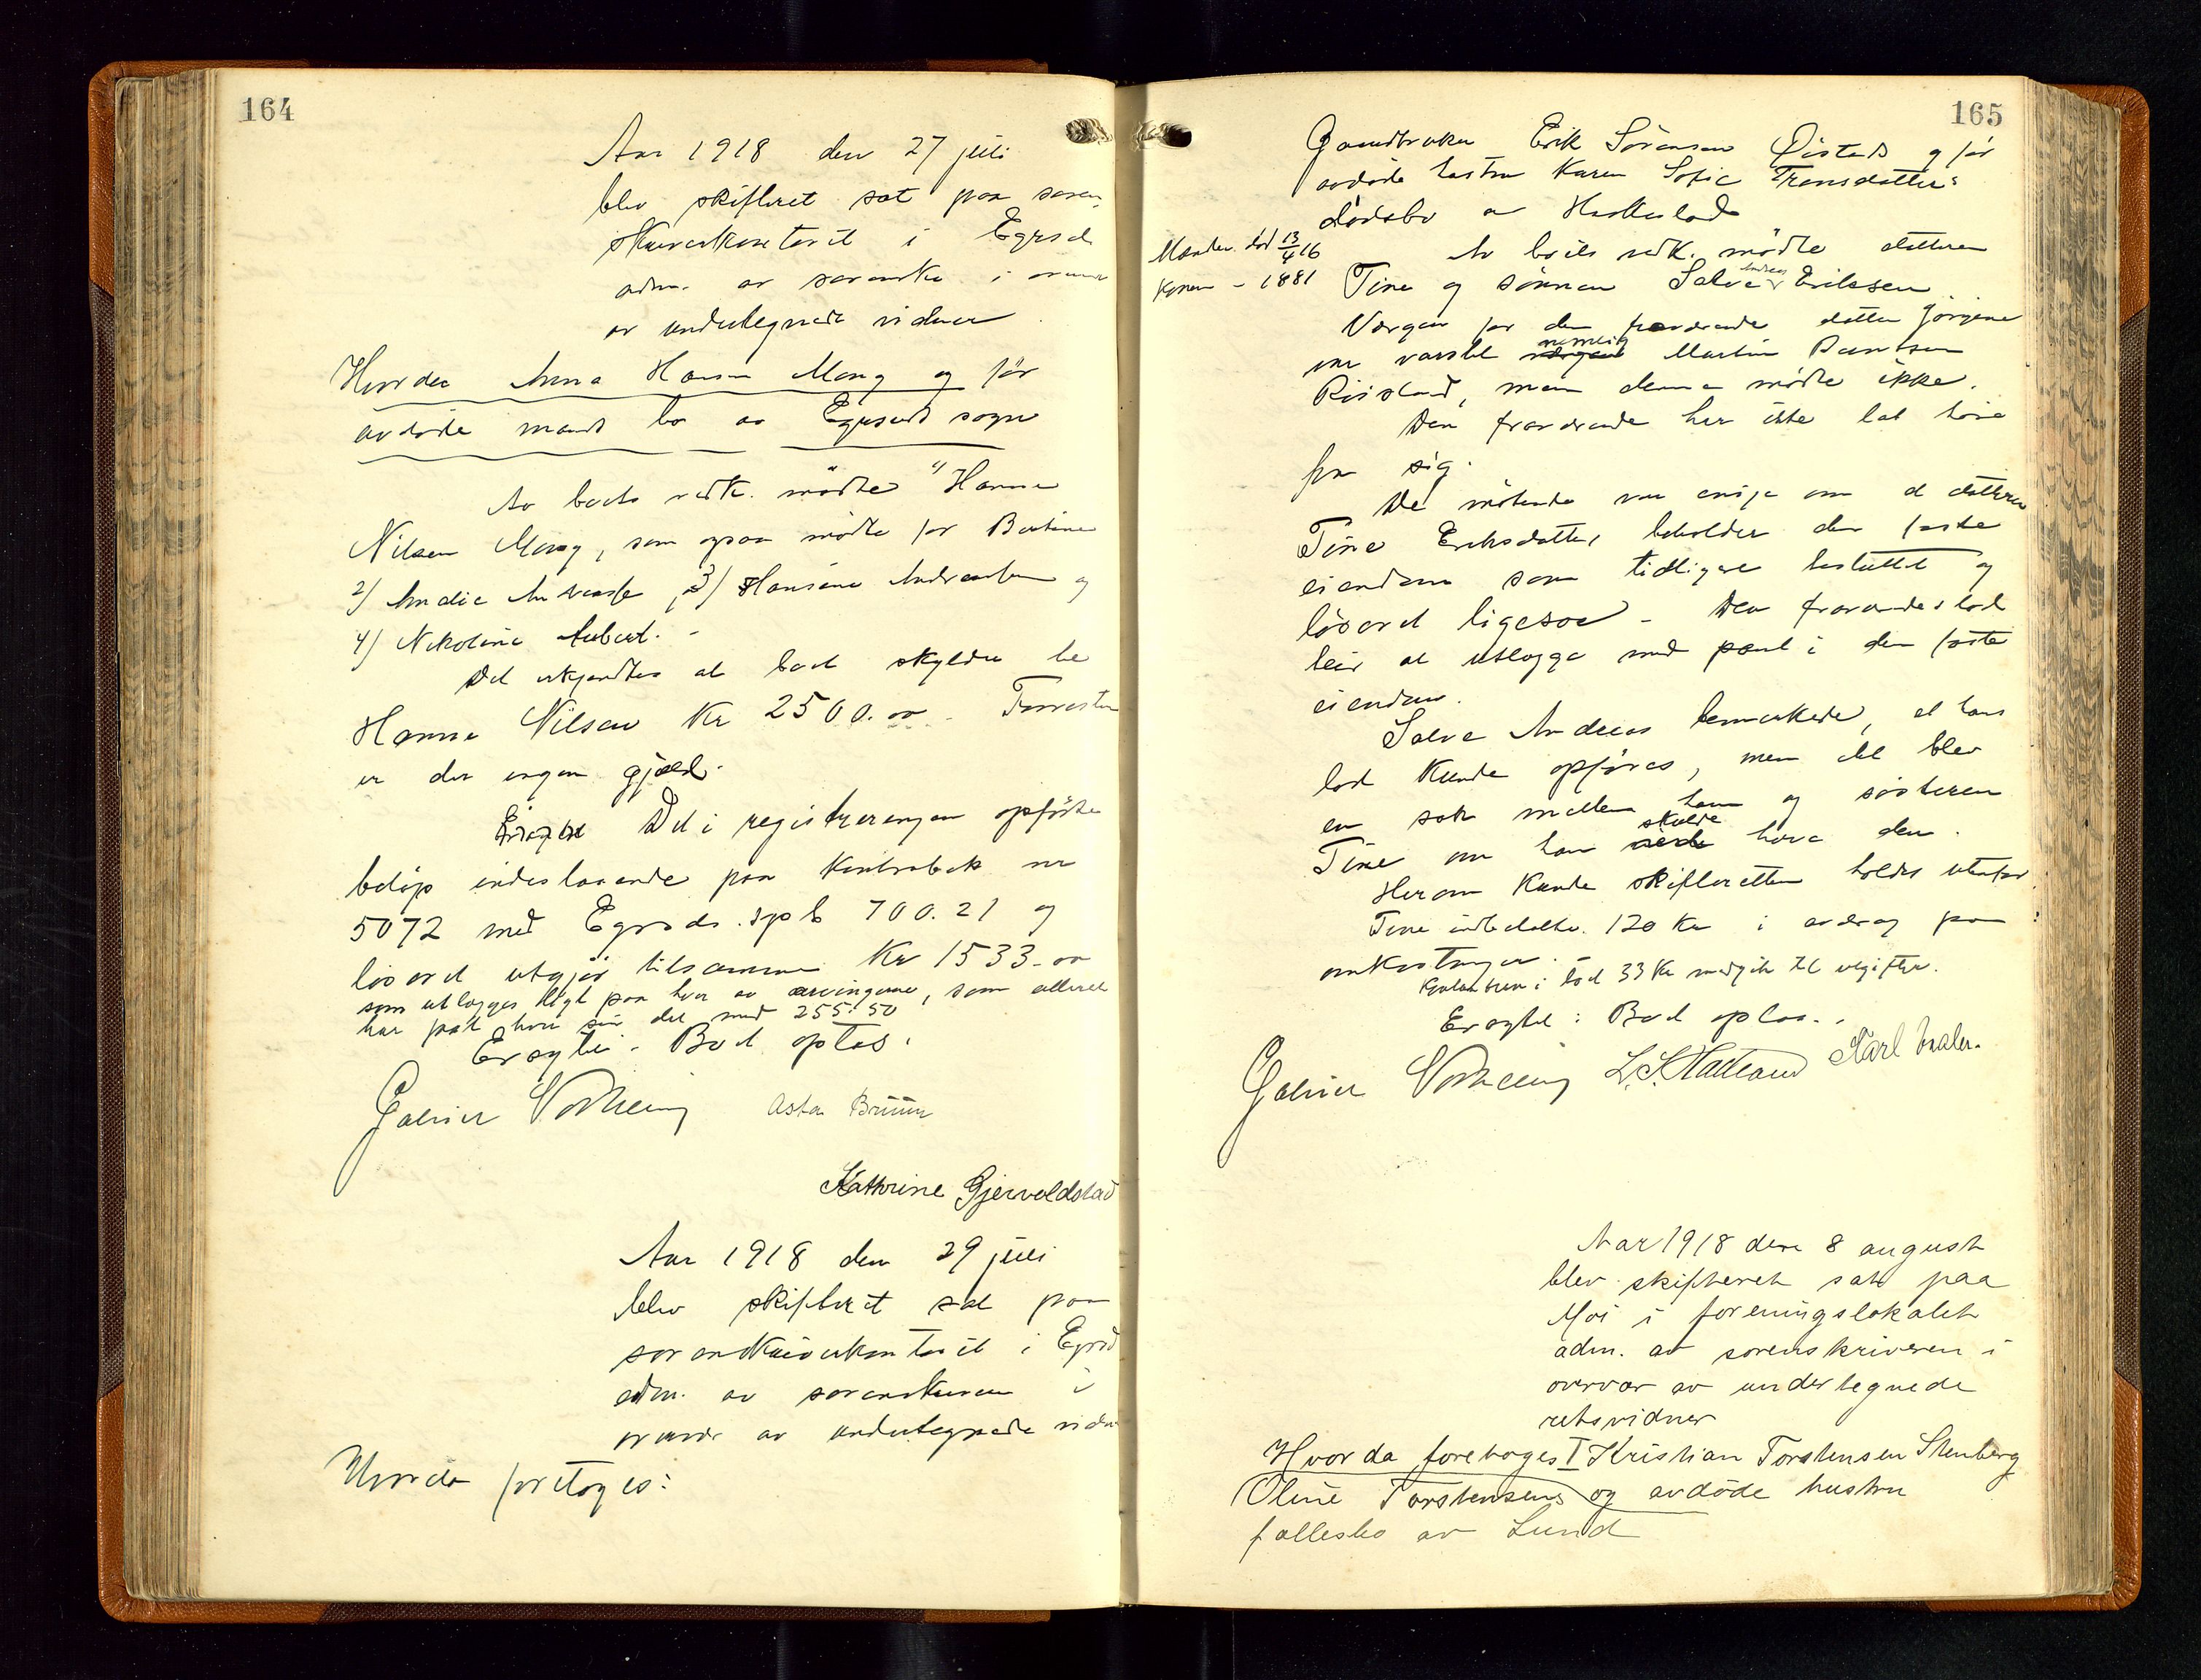 164
Aar 1918 den 27 juli
blev skifteret sat paa soren-
skriverkontoret i Egersd
adm. av sorenskr i overvær
av undertegnede vidner.
Hvorda Anna Hansen Mong og før
avdøde mands bo av Egersund sogn
Av boets vedk. mødte 1/ Hanna
Nilsen Mong, som ogsaa mødte for Bertine
2/ Andrea 3/ Hansine Andreassen og
4/ Nikoline Aubert. -
Det erkjendtes at boet skylder
Hanna Nilsen Kr 2500.00. Forresten
er der ingen gjæld.
Det i registreringen opførte
beløp indestaaende paa kontrabok nr
5072 med Egersds. spb 700.21 og
løsøret utgjør tilsammen Kr 1533.00
som utlægges likt paa hver av arvingerne, som allerede
har faat hver sin del med 255.50
Eragtet: Boet optas.
Gabriel Asta Bruun
Kathrine Gjerveldstad
Aar 1918 den 29 juli
blev skifteret sat paa
sorenskriverkontoret i Egersd
adm. av sorenskriveren i
overvær av undertegnede vidner
Hvorda foretoges:
165
Gaardbruker Erik Sørensen Øistad og før
avdøde hustru Karen Sofie Fransdatters
dødsbo av Heskestad
Manden død 13/4 16
Konen - 1881
Av boets vedk. mødte datteren
Tine og sønnen Salve Andreas Eriksen.
Vergen for den fraværende datter Jørgine
var varslet nemlig Martin
Riisland, men denne mødte ikke.
Den fraværende har ikke lat høre
fra sig.
De møtende var enige om at datteren
Tine Eriksdatter beholder den faste
eiendom som tidligere besluttet og
løsøret ligesaa - Den fraværendes lod
blir at utlægge med pant i den faste
eiendom.
Salve Andreas bemerkede, at hans
lod kunde opføres, men det blev
en sak mellem ham og søsteren
Tine om han skulde have den.
Herom kunde skifteretten holdes utenfor
Tine indbetalte 120 Kr i avdrag paa
omkostninger.
i lod 33 Kr medgik til utgifter.
Eragtet: Boet optas.
Gabriel L. S. Hatland Karl
Aar 1918 den 8 august
blev skifteret sat paa
Moi i foreningslokalet
adm. av sorenskriveren i
overvær av undertegnede
retsvidner
Hvorda foretoges I Kristian Torstensen Stenberg
Oline Torstensens og avdøde hustru
fællesbo av Lund